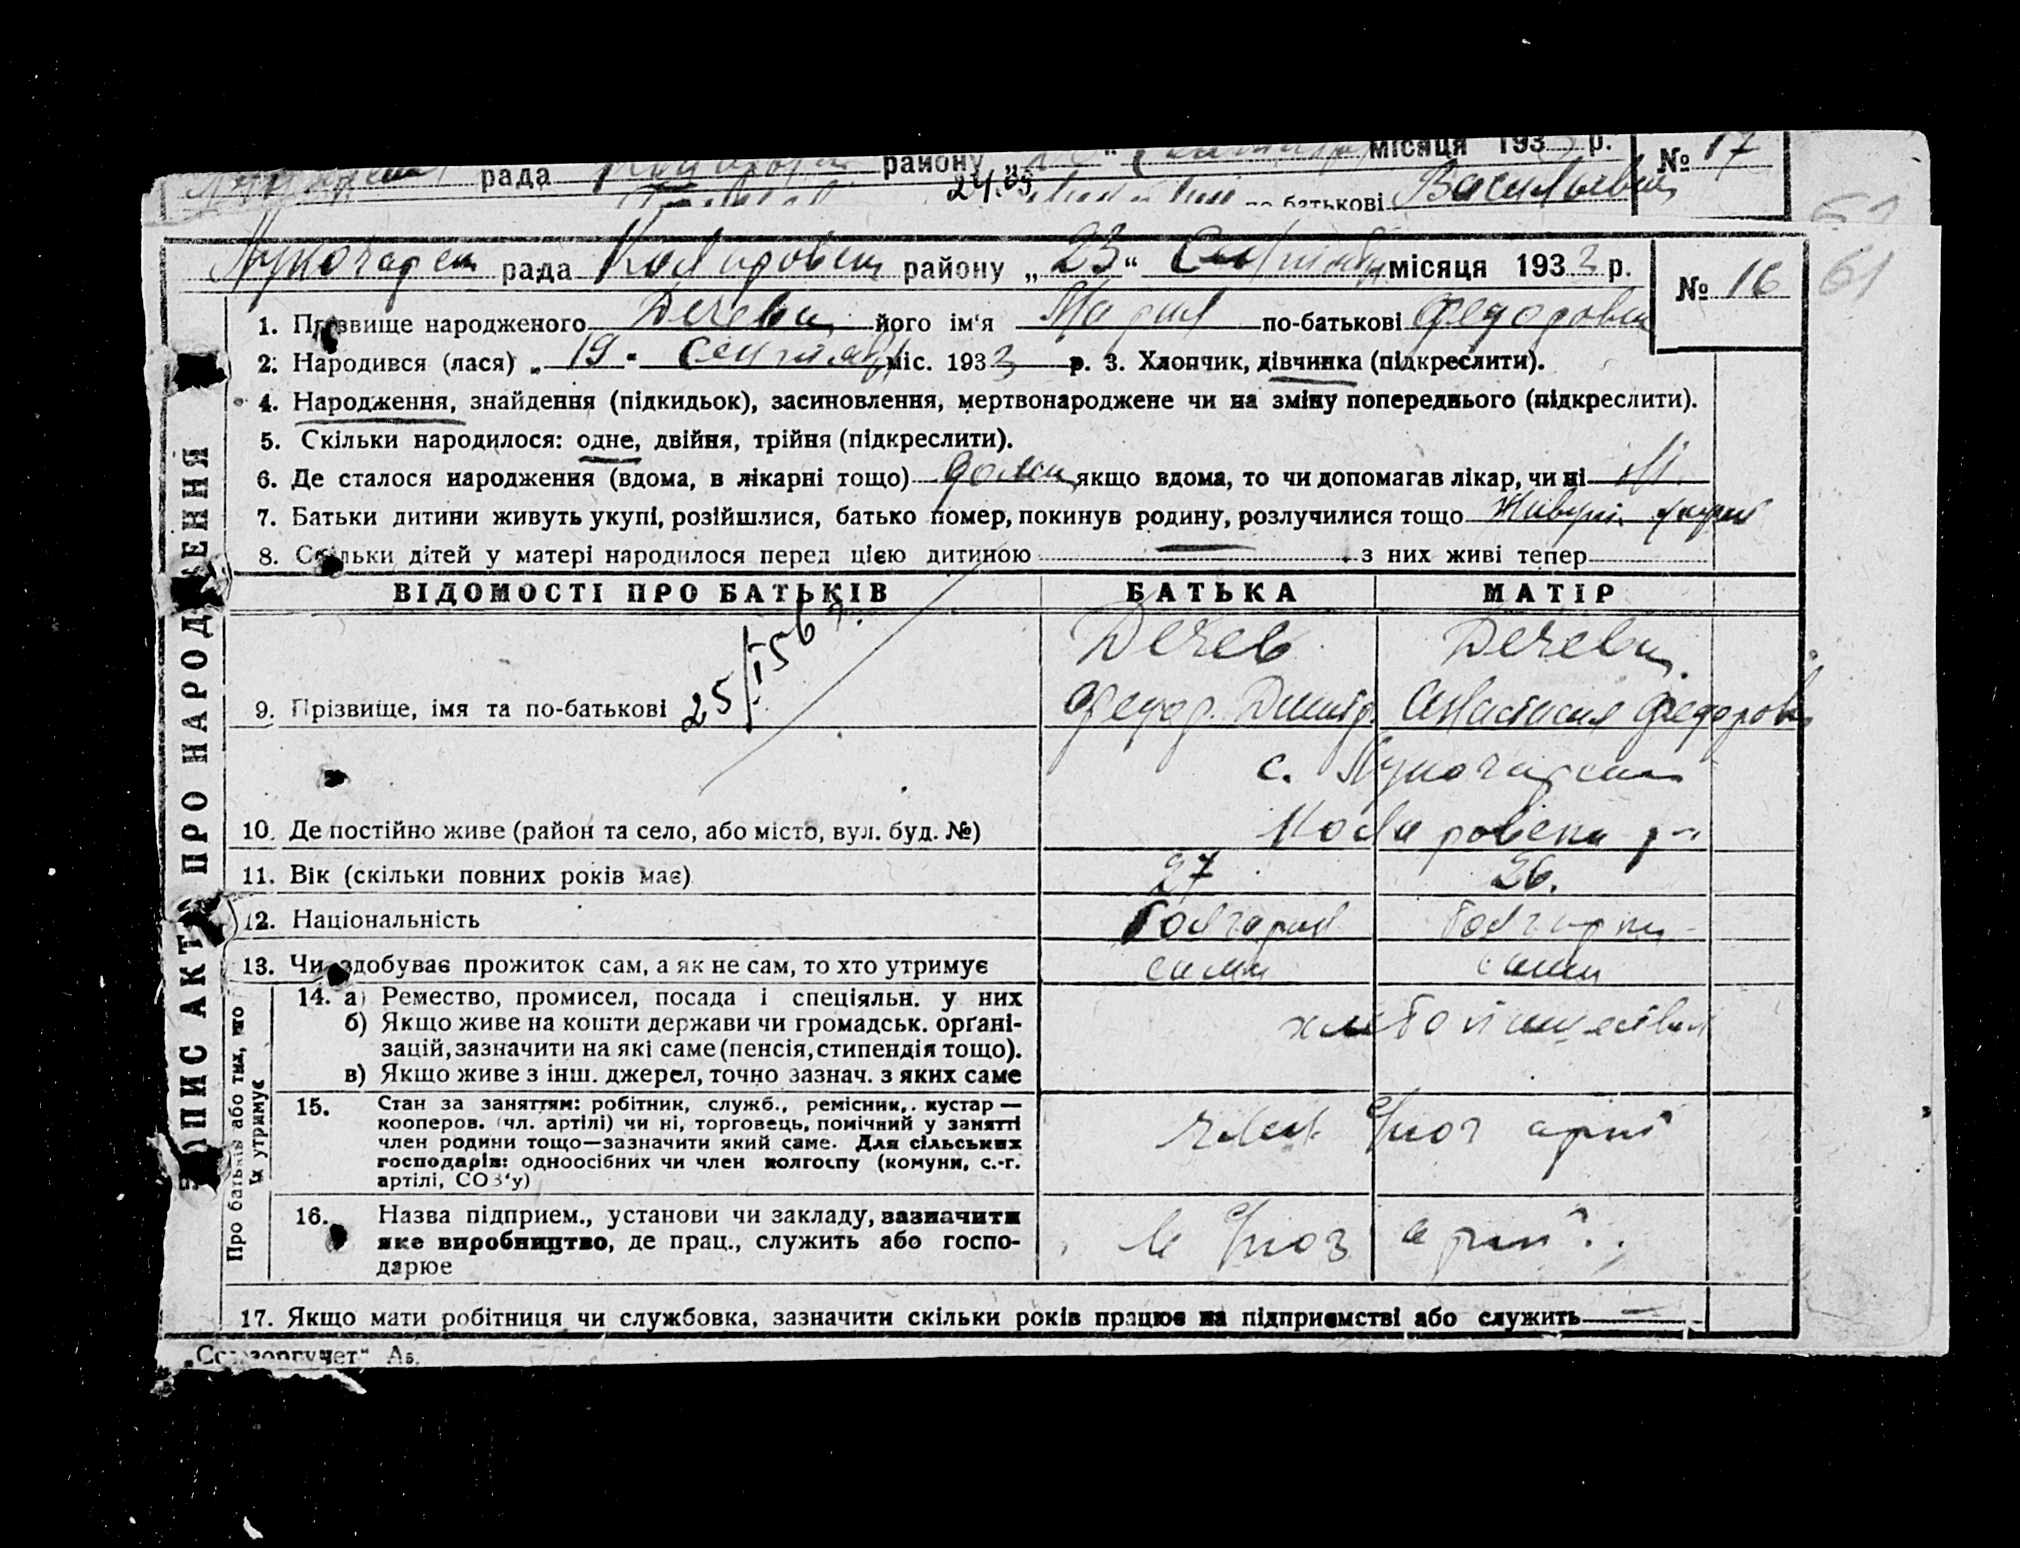 рада району „ “ місяця 193 р. № 17
24.05 по батькові Васильевич
61
рада району „23“ місяця 1933 р. № 16
61
1. Прізвище народженого Дечева його ім'я Мария по-батькові Федоровна
2. Народився (лася) „19. сентября міс. 1933 р. 3. Хлопчик, дівчинка (підкреслити).
4. Народження, знайдення (підкидьок), засиновлення, мертвонароджене чи на зміну попереднього (підкреслити).
5. Скільки народилося: одне, двійня, трійня (підкреслити).
6. Де сталося народження (вдома, в лікарні тощо) дома якщо вдома, то чи допомагав лікар, чи ні
7. Батьки дитини живуть укупі, розійшлися, батько помер, покинув родину, розлучилися тощо
8. Скільки дітей у матері народилося перед цією дитиною з них живі тепер
ВІДОМОСТІ ПРО БАТЬКІВ БАТЬКА МАТІР
Дечев Дечева
9. Прізвище, імя та по-батькові Федор Дмитр. Анастасия Федоровн
с.
10. Де постійно живе (район та село, або місто, вул. буд. №) р-н
11. Вік (скільки повних років має) 27 26.
12. Національність болгарин болгарка
13. Чи здобуває прожиток сам, а як не сам, то хто утримує сами сами
14. а) Ремество, промисел, посада і спеціяльн. у них
б) Якщо живе на кошти держави чи громадськ. органі-
зацій, зазначити на які саме (пенсія, стипендія тощо).
в) Якщо живе з інш. джерел, точно зазнач. з яких саме
хлебопашество
15. Стан за заняттям: робітник, служб., ремісник,. кустар —
кооперов. (чл. артілі) чи ні, торговець, помічний у занятті
член родини тощо—зазначити який саме. Для сільських
господарів: одноосібних чи член колгоспу (комуни, с.-г.
артілі, СОЗ'у)
16. Назва підприєм., установи чи закладу, зазначити
яке виробництво, де прац., служить або госпо-
дарює
17. Якщо мати робітниця чи службовка, зазначити скільки років працює на підприємстві або служить
ЗАПИС АКТУ ПРО НАРОДЖЕННЯ
Про батьків або тих, що
їх утримує
„Союзоргучет“